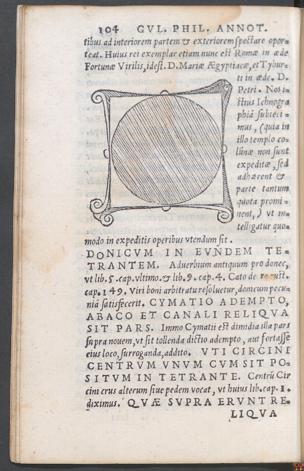 104 GVL. PHIL. ANNOT.
tibus ad interiorem partem & exteriorem spectare opor-
teat. Huius rei exemplar etiam nunc est Romæ in æde
Fortunæ Virilis, idest. D. Mariæ Ægyptiacæ, et Tybur-
ti in æde. D.
Petri. Nos i-
stius Ichnogra
phiā subieci-
mus, (quia in
illo templo co-
lūnæ non sunt
expeditæ, sed
adhærent &
parte tantum
quota promi-
nent,) vt in-
telligatur quo-
modo in expeditis operibus vtendum sit.
DONICVM IN EVNDEM TE-
TRANTEM. Aduerbium antiquum pro donec,
vt lib. 5. cap. vltimo. & lib. 9. cap. 4. Cato de re rust.
cap. 149. Viri boni arbitratu resoluetur, donicum pecu-
niā satisfecerit. CYMATIO ADEMPTO,
ABACO ET CANALI RELIQVA
SIT PARS. Immo Cymatii est dimidia illa pars
supra nouem, vt sit tollenda dictio adempto, aut fortasse
eius loco, surroganda, addito. VTI CIRCINI
CENTRVM VNVM CVM SIT PO-
SITVM IN TETRANTE. Centrū Cir
cini crus alterum siue pedem vocat, vt huius lib. cap. 1.
diximus. QVÆ SVPRA ERVNT RE-
LIQVA